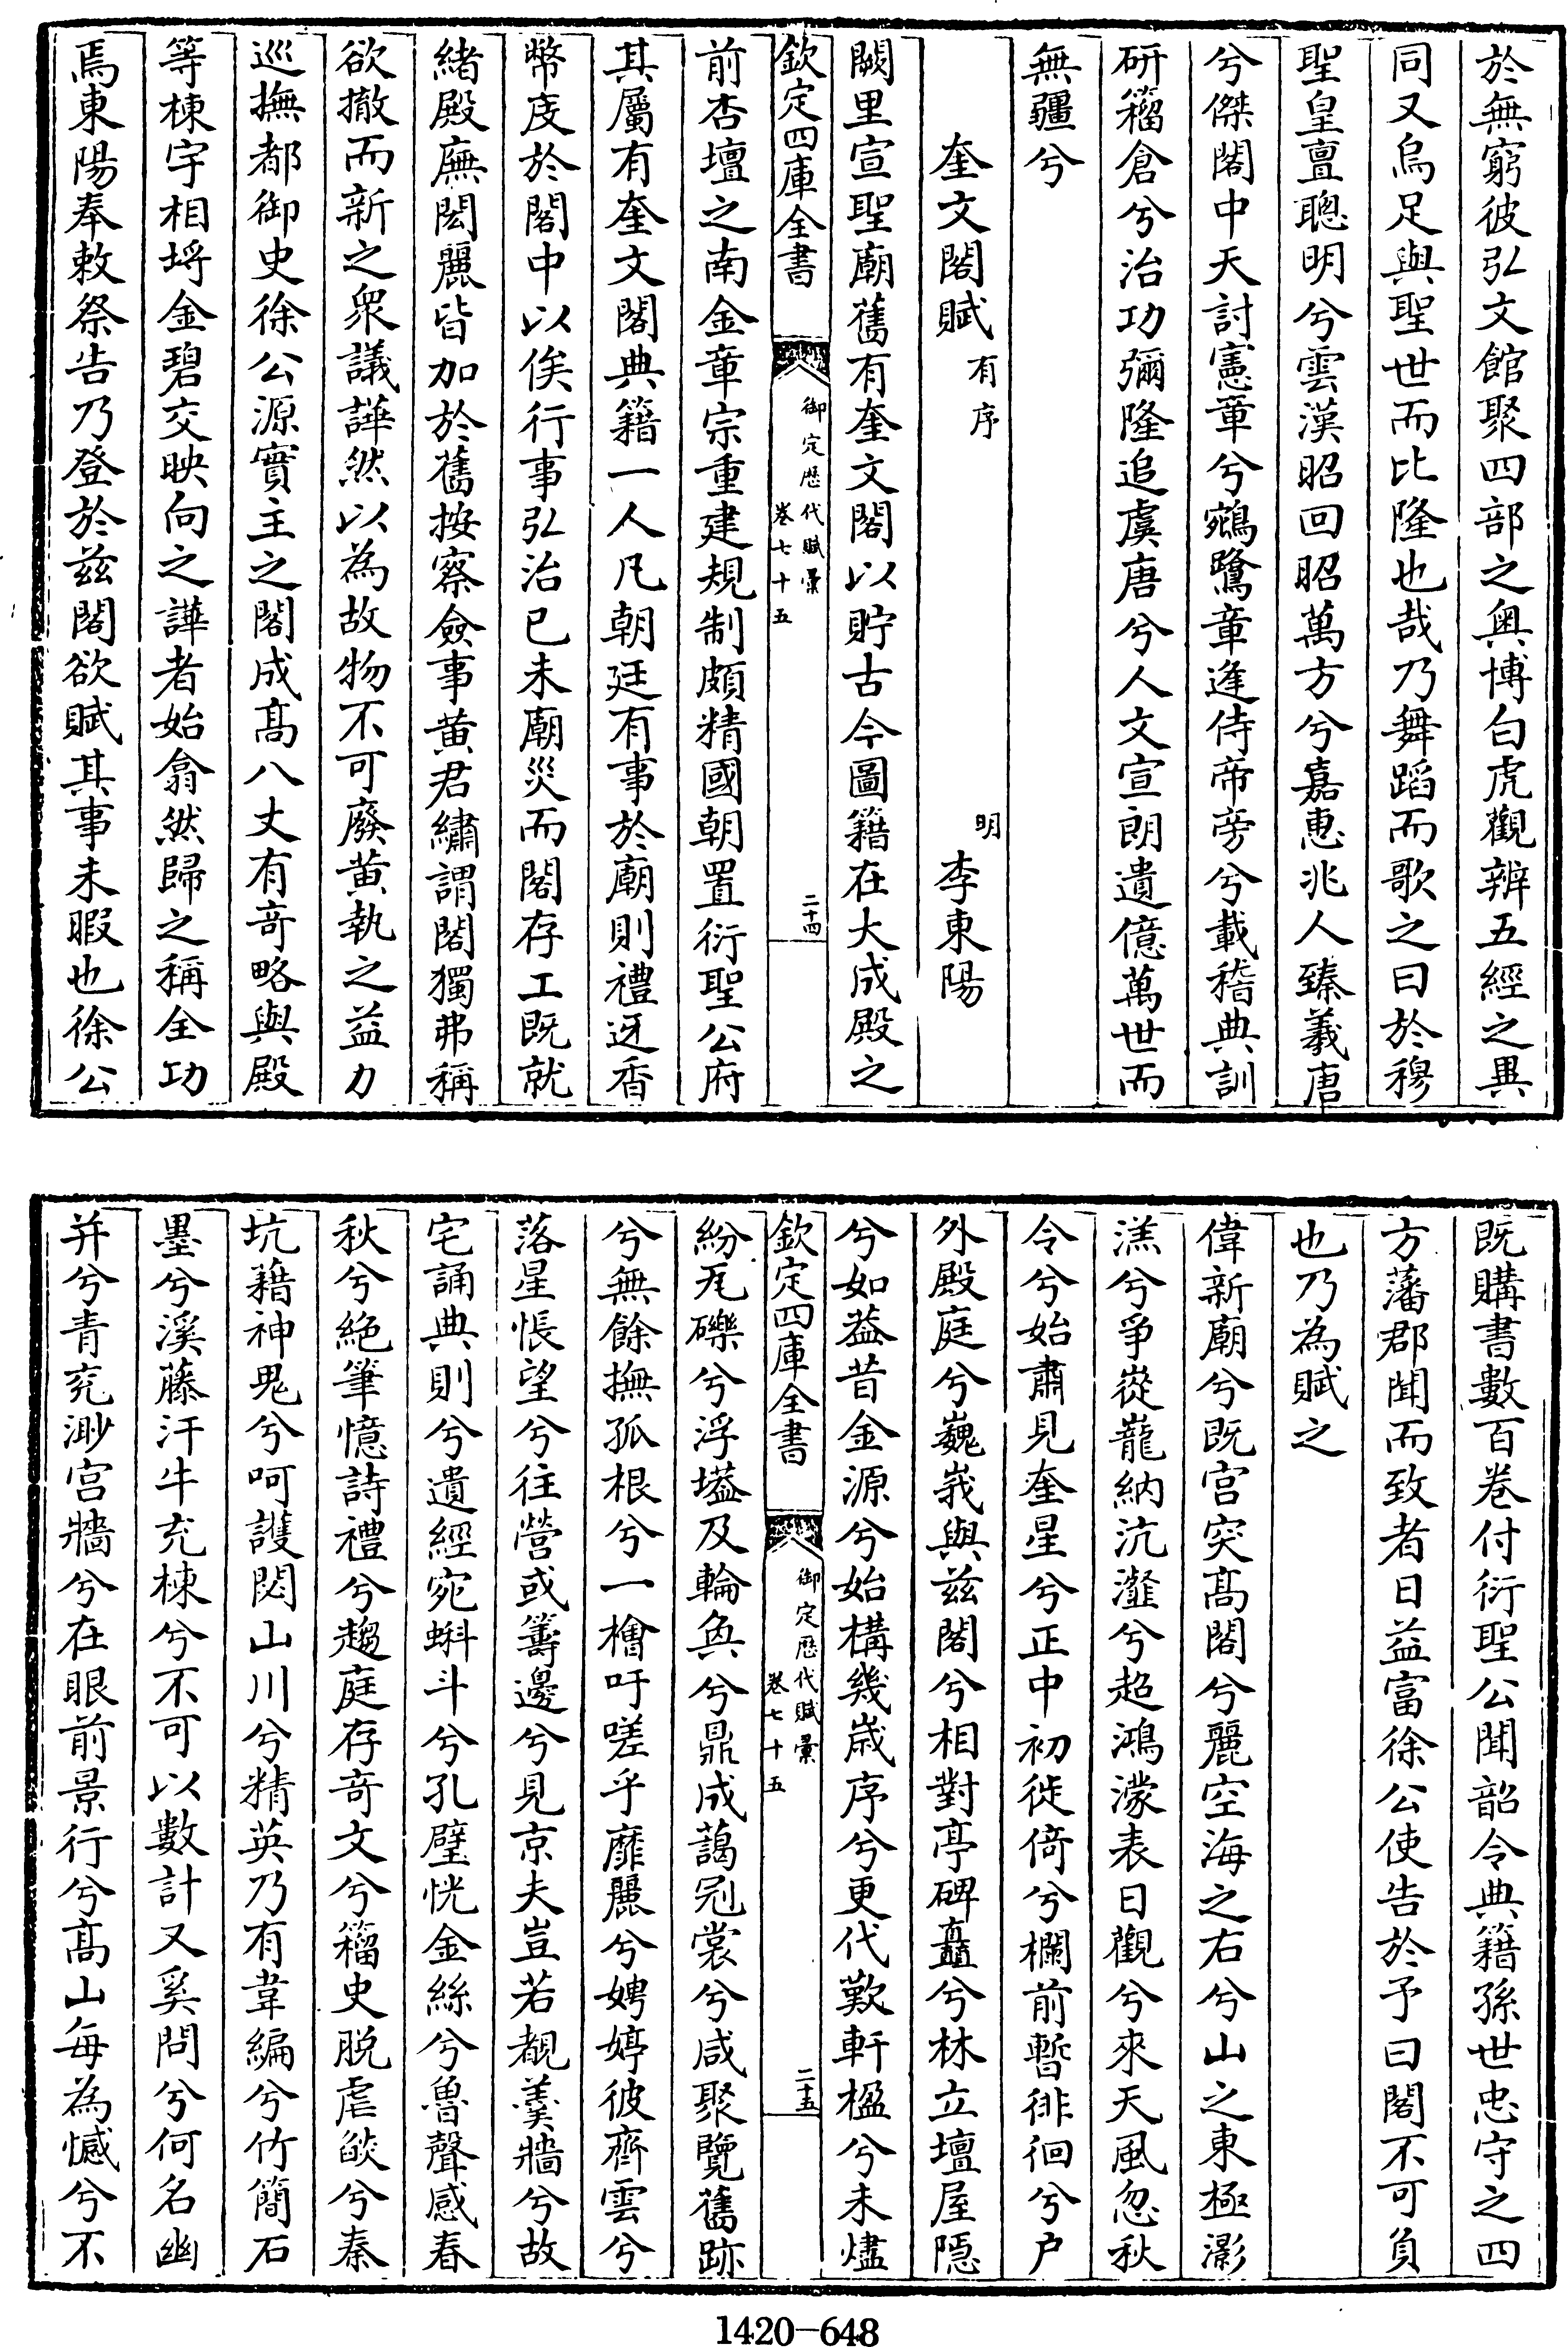 於無窮彼弘文館聚四部之奥博白虎觀辨五經之異
同又烏足與聖世而比隆也哉乃舞蹈而歌之曰於穆
聖皇亶聰明兮雲漢昭回昭萬方兮嘉惠兆人臻羲唐
兮傑閣中天討憲章兮鵷鷺章逢侍帝旁兮載稽典訓
研籀倉兮治功彌隆追虞唐兮人文宣朗遺億萬世而
無疆兮
奎文閣賦 有序 明 李東陽
闕里宣聖廟舊有奎文閣以貯古今圖籍在大成殿之
欽定四庫全書 御定歷代賦彙 卷七十五 二十四
前杏壇之南金章宗重建規制頗精國朝置衍聖公府
其屬有奎文閣典籍一人凡朝廷有事於廟則禮迓香
幣庋於閣中以俟行事弘治己未廟災而閣存工既就
緒殿廡閎麗皆加於舊按察僉事黄君繡謂閣獨弗稱
欲撤而新之衆議譁然以為故物不可廢黄執之益力
巡撫都御史徐公源實主之閣成髙八丈有竒略與殿
等棟宇相埒金碧交映向之譁者始翕然歸之稱全功
焉東陽奉敕祭告乃登於兹閣欲賦其事未暇也徐公
既購書數百卷付衍聖公聞韶令典籍孫世忠守之四
方藩郡聞而致者日益富徐公使告於予曰閣不可負
也乃為賦之
偉新廟兮既宫突髙閣兮麗空海之右兮山之東極滮
漾兮爭嵸巃納沆瀣兮超鴻濛表日觀兮來天風忽秋
令兮始肅見奎星兮正中初徙倚兮欄前暫徘徊兮户
外殿庭兮巍峩與兹閣兮相對亭碑矗兮林立壇屋隠
兮如葢昔金源兮始構幾歳序兮更代歎軒楹兮未燼
欽定四庫全書 御定歷代賦彙 卷七十五 二十五
紛瓦礫兮浮壒及輪奐兮鼎成藹冠裳兮咸聚覽舊跡
兮無餘撫孤根兮一檜吁嗟乎靡麗兮娉婷彼齊雲兮
落星悵望兮往營或籌邊兮見京夫豈若覩羮牆兮故
宅誦典則兮遺經宛蝌斗兮孔壁恍金絲兮魯聲感春
秋兮絶筆憶詩禮兮趨庭存竒文兮籀史脱虐燄兮秦
坑藉神鬼兮呵護閟山川兮精英乃有韋編兮竹簡石
墨兮溪藤汗牛充棟兮不可以數計又奚問兮何名幽
并兮青兖渺宫牆兮在眼前景行兮髙山每為憾兮不
1420-648